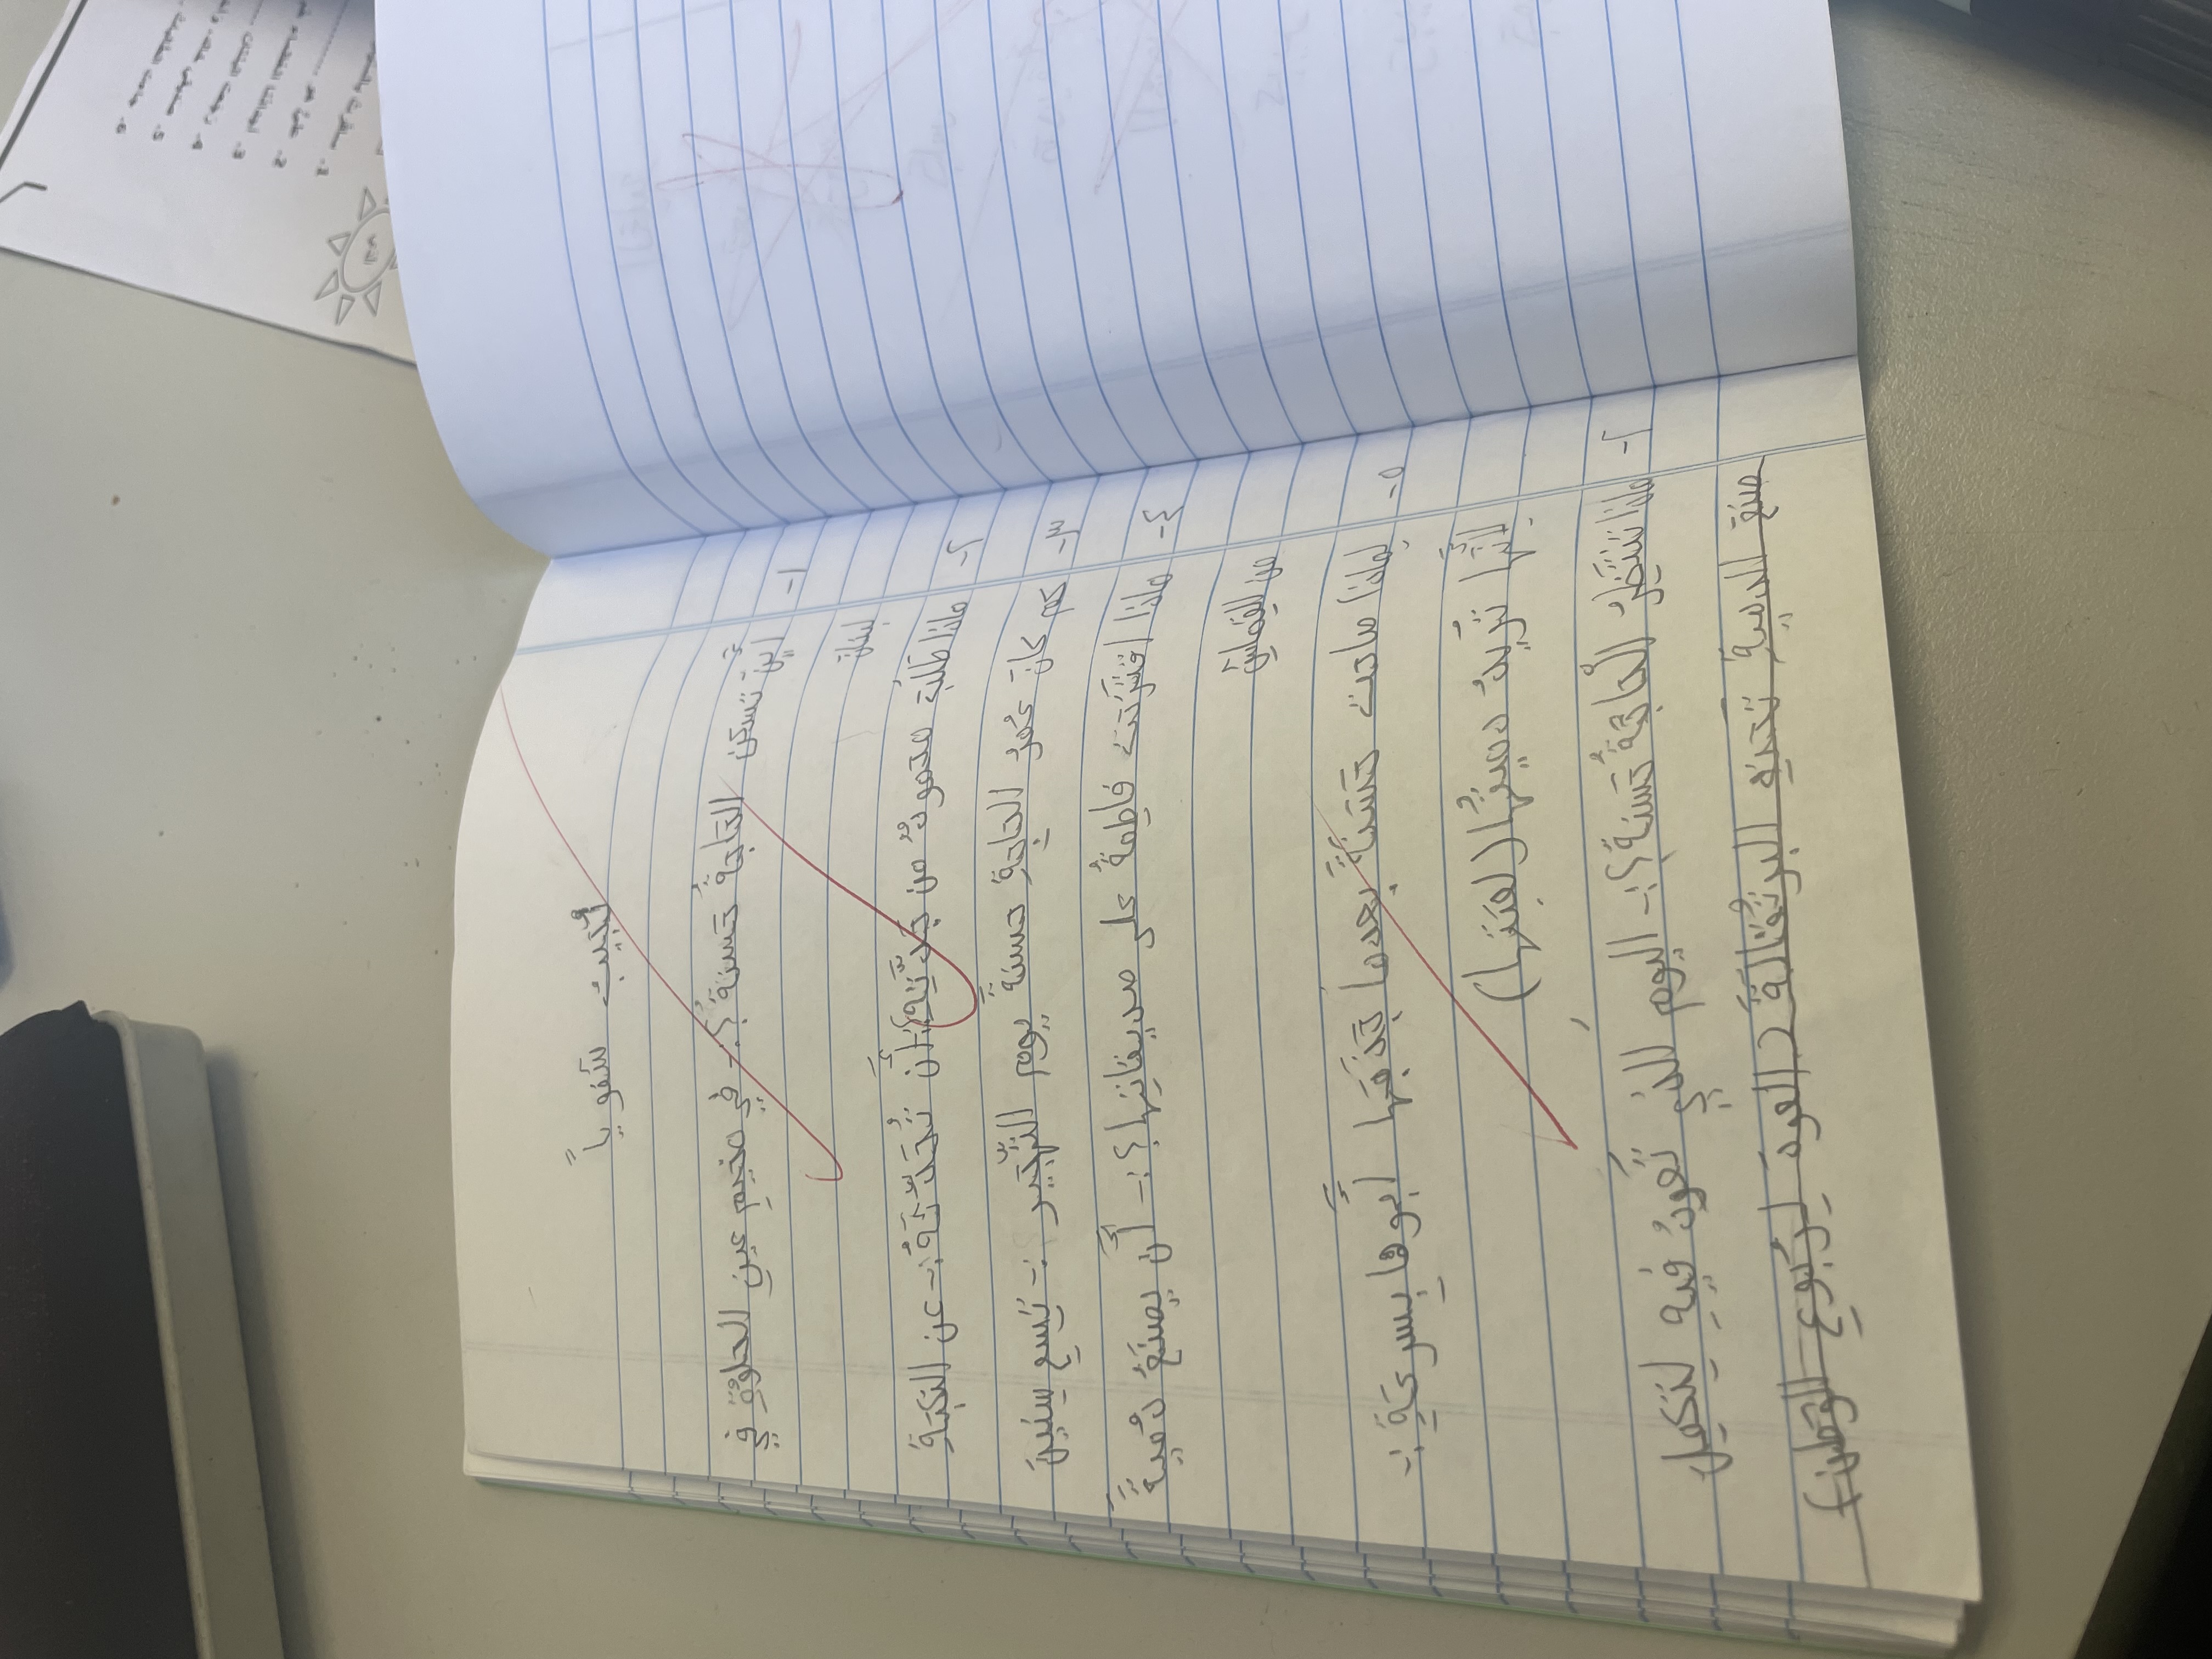 نُجيبُ شفوياً
١- أين تسكن الحَاجَةُ حَسنَةُ؟:- في مخيم عين الحلوة في
لبنان
٢- ماذا طَلَبَ محمودٌ من جَدَّتِهِ؟: أَن تُحَدِّثَهُ:- عن النكبَةَ
٣- كم كانَ عُمرُ الحاجةِ حسنَةَ يومِ التَّهْجير؟:- تِسعِ سِنينَ
٤- ماذا اقتَرَحَتْ فاطِمَةُ على صديقاتِها؟:- أَن يصنَعُ دُميةً
من القِماشِ
٥- لماذا صاحت حَسَنَةُ بعدما جَذَبَها أَبوها بِسرعَةٍ:-
لأنَّها تُريدُ دميتُها (لعبَتها)
٦- ماذا تنتَظِرُ الْحاجَةُ حَسنَةُ؟:- اليومِ الذي تَعودُ فيهِ لتكمِلَ
صنعَ الدميةُ تحت البرتُقالَةَ (العودَ لِرُبوعِ الوَطَن)